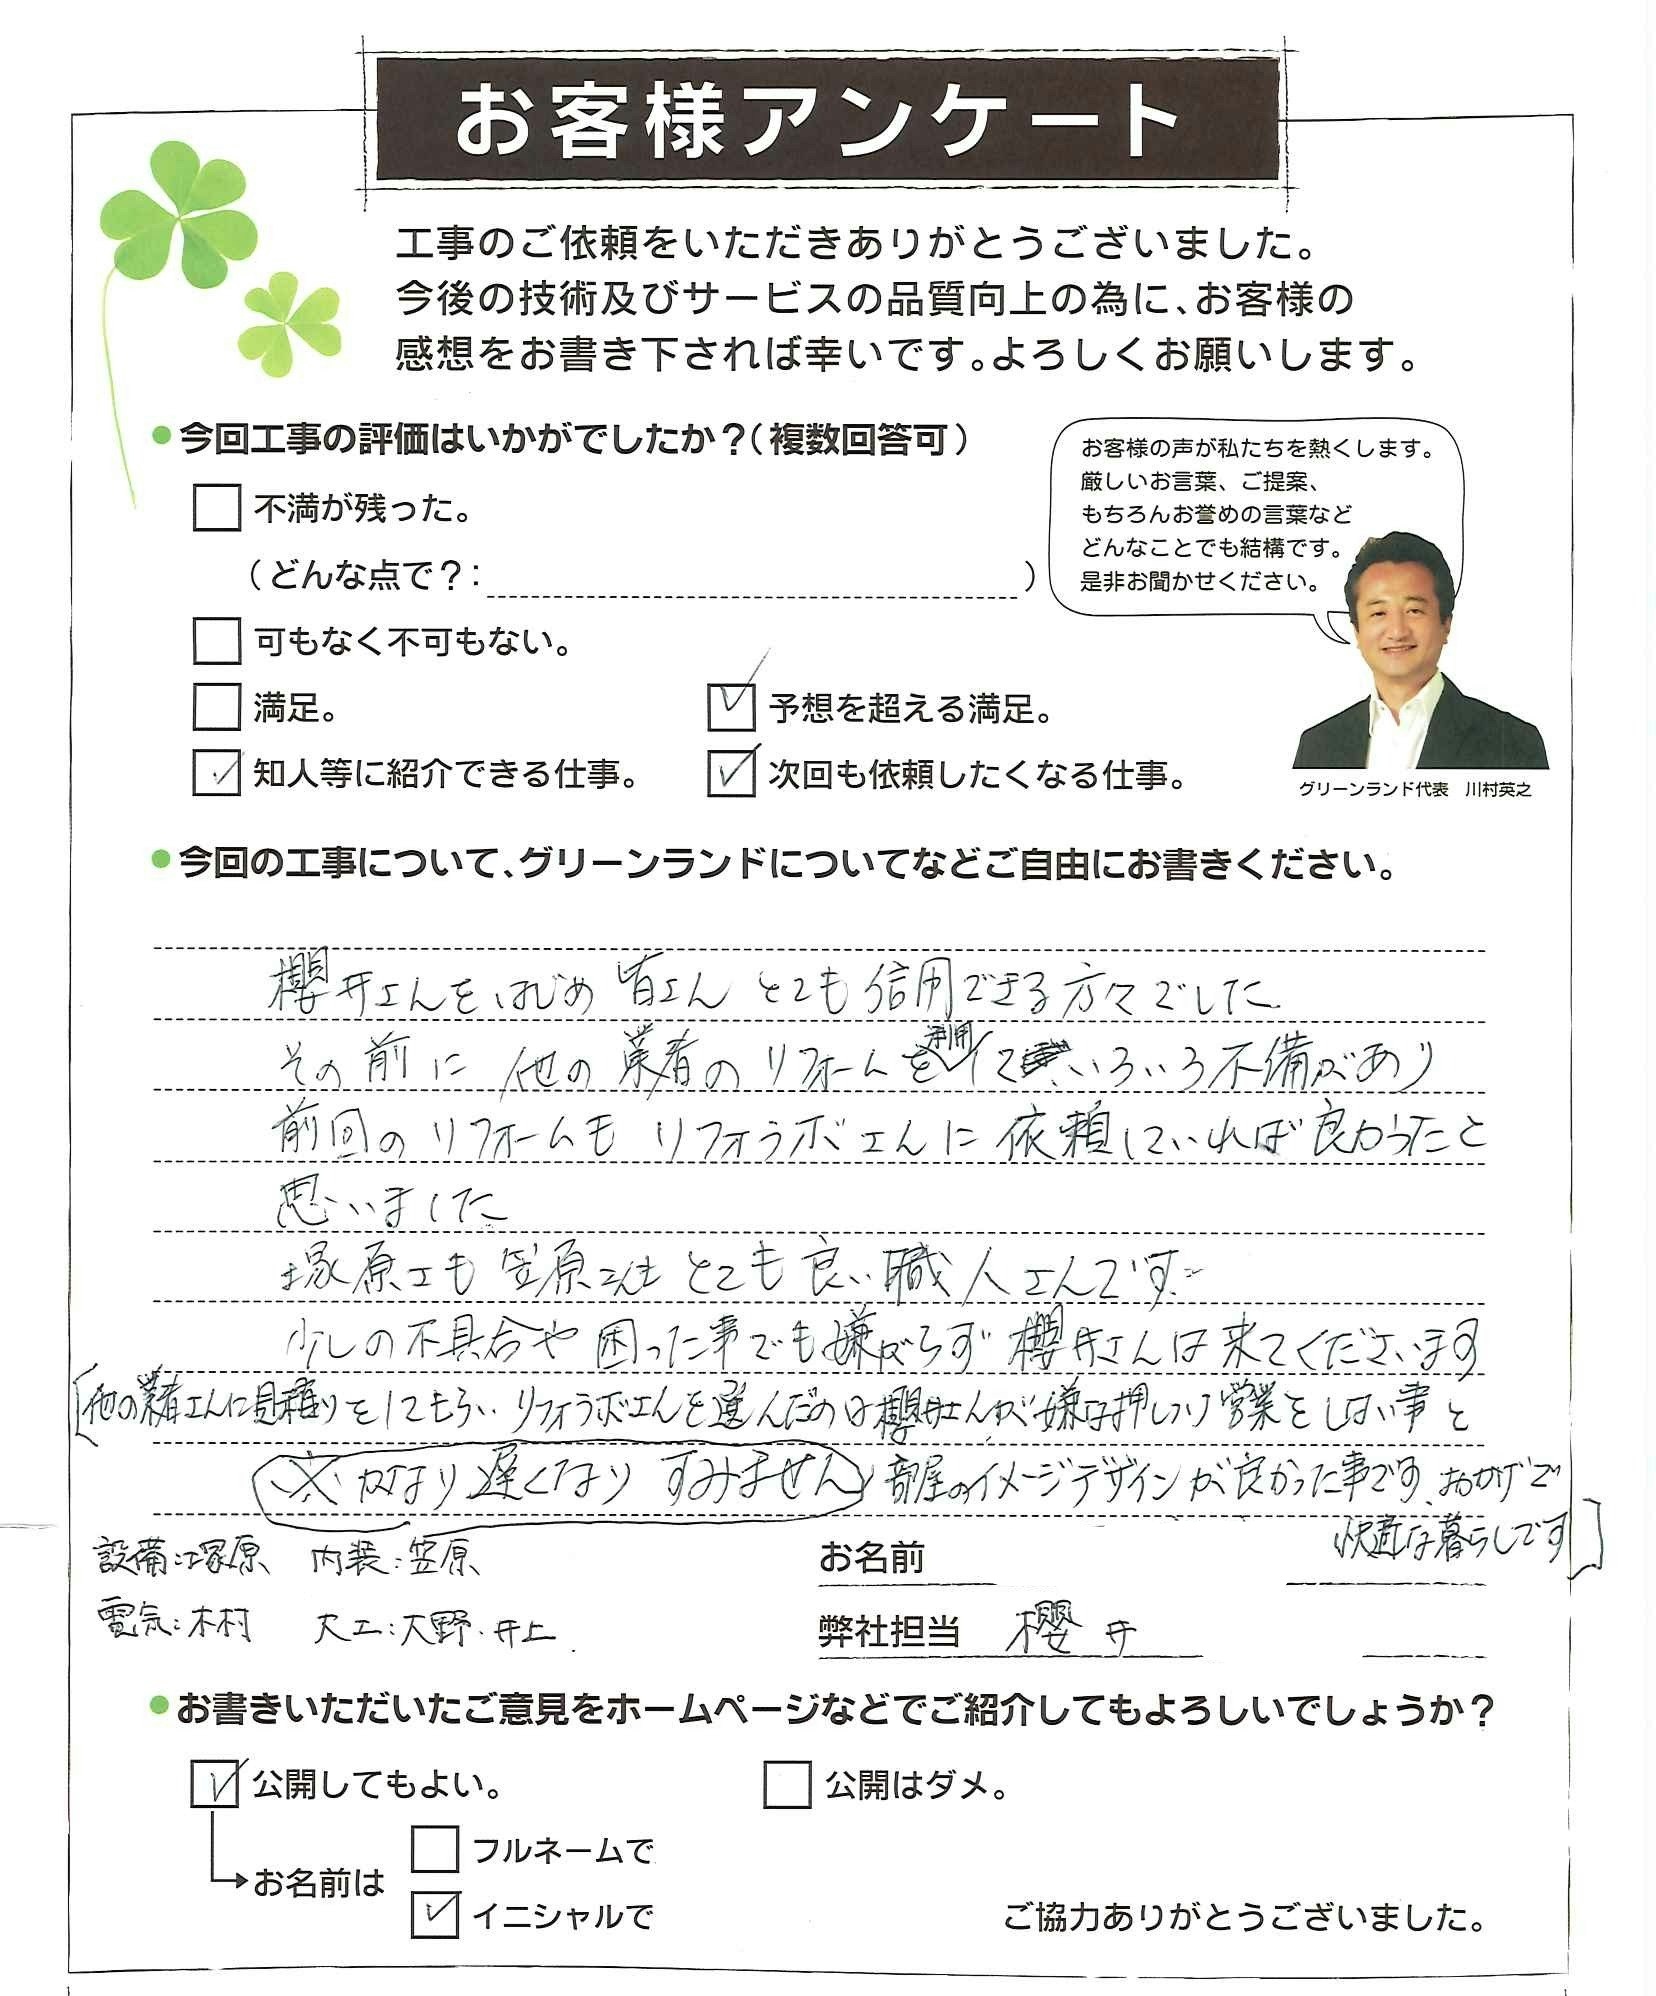 お客様アンケート
工事のご依頼をいただきありがとうございました。
今後の技術及びサービスの品質向上の為に、お客様の
感想をお書き下されば幸いです。よろしくお願いします。
今回工事の評価はいかがでしたか？（複数回答可）
お客様の声が私たちを熱くします。
厳しいお言葉、ご提案、
もちろんお誉めの言葉など
どんなことでも結構です。
是非お聞かせください。
不満が残った。
（どんな点で？：　）
可もなく不可もない。
満足。
予想を超える満足。
知人等に紹介できる仕事。
次回も依頼したくなる仕事。
グリーンランド代表　川村英之
今回の工事について、グリーンランドについてなどご自由にお書きください。
櫻井さんをはじめ 皆さん とても信用できる方々でした
その前に 他の業者のリフォームを利用していろいろ不備があり
前回のリフォームも リフォラボさんに依頼していれば良かったと
思いました
塚原さも 笠原さんも とても良い職人さんです。
少しの不具合や困った事でも嫌がらず 櫻井さんは来てくださいます
[他の業者さんに見積りをしてもらい リフォラボさんを選んだのは櫻井さんが嫌な押しつけ営業をしない事と
※かなり遅くなり すみません
部屋のイメージデザインが良かった事です。おかげで
快適な暮らしです]
設備：塚原　内装：笠原
電気：木村　大工：大野・井上
お名前
弊社担当　櫻井
お書きいただいたご意見をホームページなどでご紹介してもよろしいでしょうか？
公開してもよい。
公開はダメ。
お名前は
フルネームで
イニシャルで
ご協力ありがとうございました。